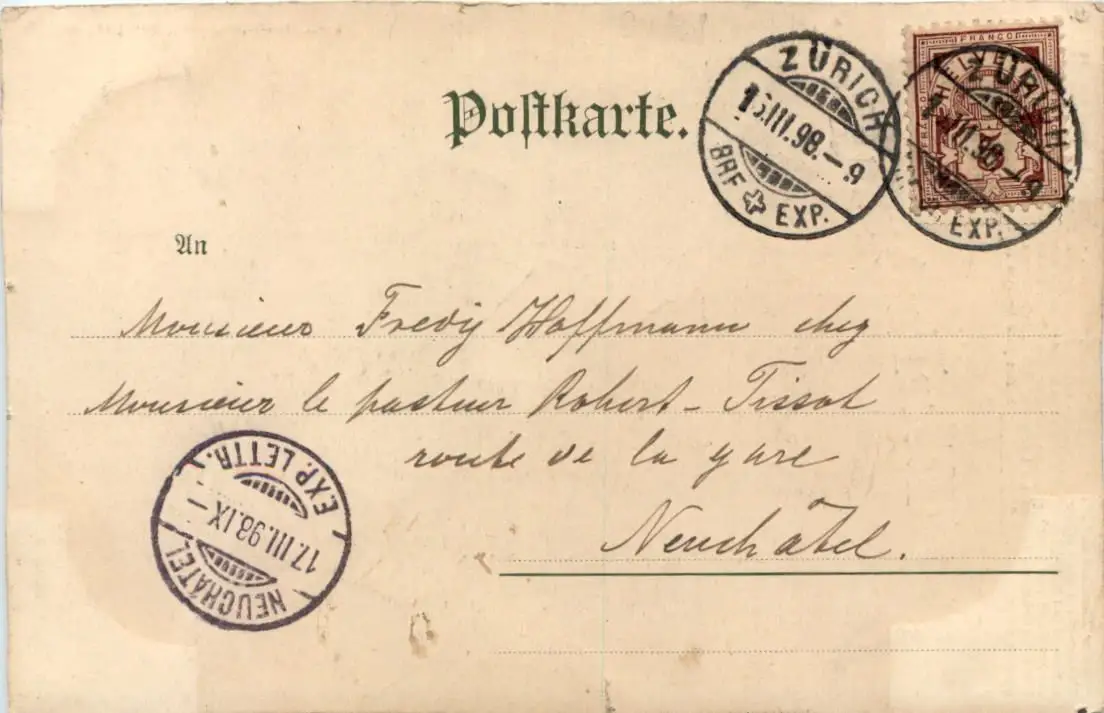 Postkarte.
ZÜRICH
16.III.98.–9
BRF EXP.
FRANCO
HELVETIA
ZÜRICH
III.98.–9
EXP.
An
Monsieur Fredy Hoffmann chez
Monsieur le pasteur Robert-Tissot
route de la gare
Neuchâtel.
EXP. LETTR.
17.III.98.IX–
NEUCHÂTEL